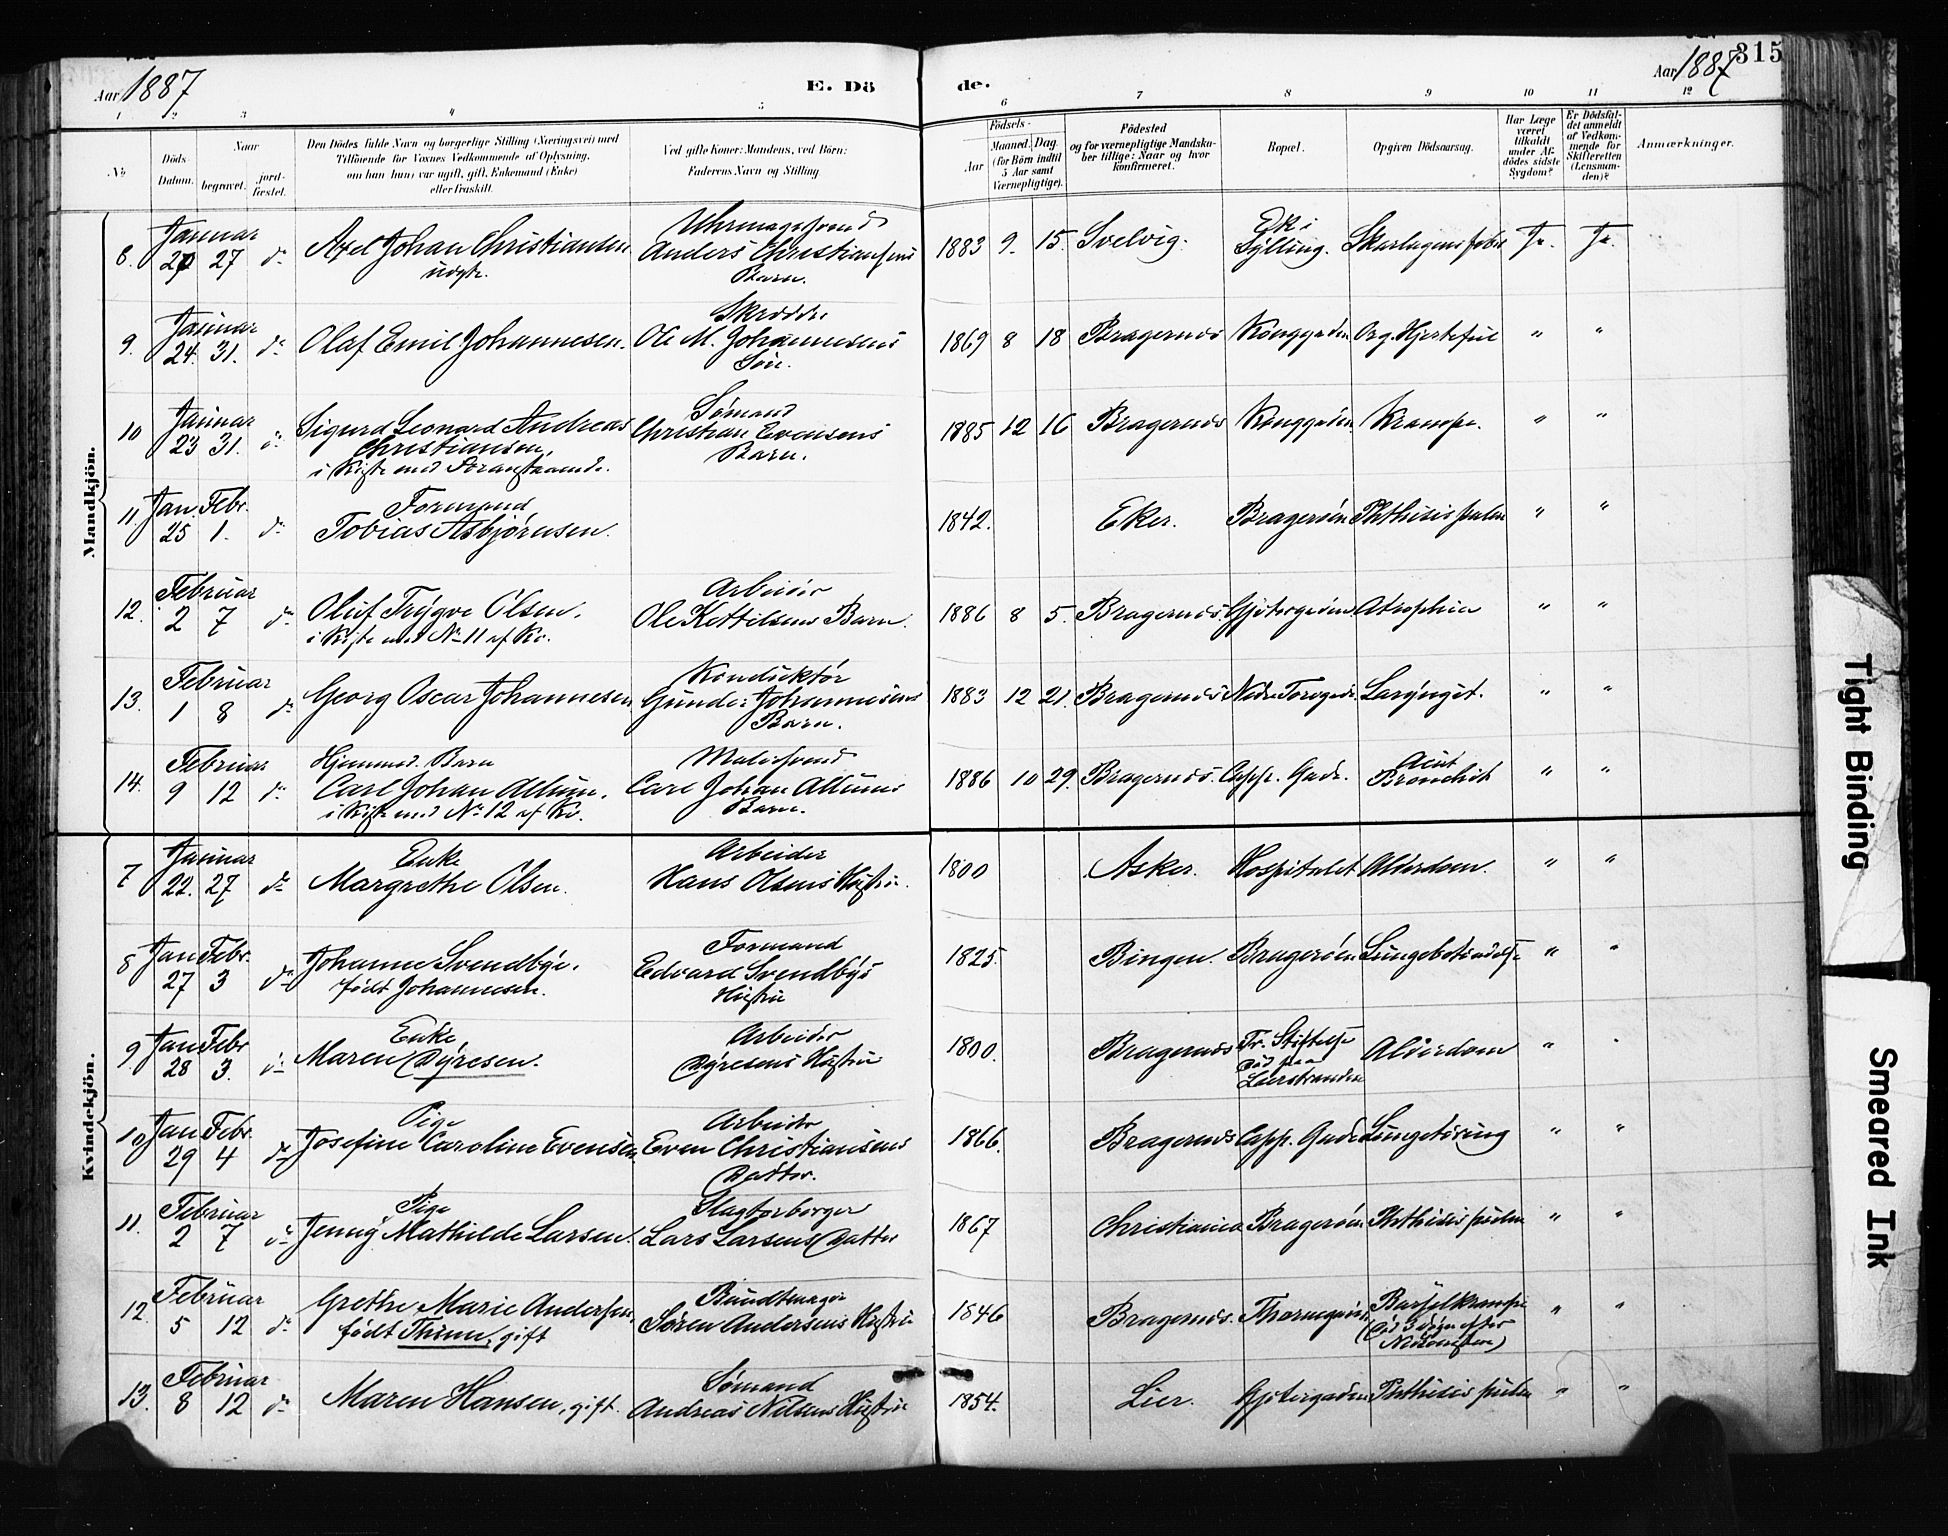 Aar 1887 E. Döde. Aar 1887 315
1 2 3 4 5 6 7 8 9 10 11 12
No.
Döds-Datum.
Naar
begravet.
jord-fæstet.
Den Dödes fulde Navn og borgerlige Stilling (Næringsvei) med
Tilföiende for Voxnes Vedkommende af Oplysning,
om han (hun) var ugift, gift, Enkemand (Enke)
eller fraskilt.
Ved gifte Koner: Mandens, ved Börn:
Faderens Navn og Stilling.
Födsels-
Aar
Maaned. Dag.
(for Börn indtil
5 Aar samt
Værnepligtige).
Födested
og for værnepligtige Mandska-
ber tillige: Naar og hvor
konfirmeret.
Bopæl.
Opgiven Dödsaarsag.
Har Læge
været
tilkaldt
under Af-
dödes sidste
Sygdom?
Er Dödsfal-
det anmeldt
af Vedkom-
mende for
Skifteretten
(Lensman-
den)?
Anmærkninger.
Mandkjön.
8. Januar 27 do Axel Johan Christiansen Anders Christiansens Barn. 1883 9. 15. Svelvig. Sylling. Ja. Ja.
9. Januar 24. 31. do Olaf Emil Johannesen. Skrædder Ole M. Johannesens Søn. 1869 8 18 Bragernæs Konggaden Org. Hjertefeil " "
10 Januar 23 31. do Sigurd Leonard Andreas Christiansen, Sømand Christian Evensens Barn. 1885 12 16 Bragernæs Konggaden. Krampe. " "
11. Jan. 25 Febr. 1. do Formand Tobias Asbjørnsen. 1842. Eker. Bragerøen Phthisis pulm " "
12. Februar 2 7 do Oluf Trygve Olsen. i Kiste med No 11 af Kv. Arbeider Ole Kettilsens Barn. 1886 8 5. Bragernæs. Gjetergaden Atrophia " "
13. Februar 1 8 do Georg Oscar Johannesen Konduktør Gunder Johannesens Barn. 1883 12 21. Bragernæs Nedre Torvgade Laryngit. " "
14. Februar 9 12 do Hjemmed. Barn Carl Johan Allum. i Kiste med No 12 af Kv. Malersvend Carl Johan Allums Barn. 1886 10 29. Bragernæs. Capp. Gade. Acut Bronchit " "
Kvindekjön.
7 Januar 22. 27 do Enke Margrethe Olsen. Arbeider Hans Olsens Hustru. 1800 Asker. Hospitalet Alderdom. " "
8 Jan 27 Febr. 3 do Johanne Svendbye. født Johannesen. Formand Edvard Svendbys Hustru 1825. Bingen. Bragerøen Lungebetændelse " "
9. Jan 28 Febr 3. do Enke Maren Dyresen. Arbeider Dyresens Hustru 1800. Bragernæs Fr. Stiftelse Død paa Lierstranden Alderdom " "
10 Jan 29 Febr. 4 do Pige Josefine Caroline Evensen Arbeider Even Christiansens Datter. 1866. Bragernæs Capp. Gade Lungetæring " "
11. Februar 2 7 do Pige Jenny Mathilde Larsen. Slagterborger Lars Larsens Datter 1867 Christiania Bragerøen Phthisis pulm " "
12. Februar 5 12 do Grethe Marie Andersen, født Thinn, gift Bundtmager Søren Andersens Hustru 1846 Bragernæs. Barselkrampe (Død 3 Døgn efter Nedkomsten) " "
13. Februar 8 12 do Maren Hansen, gift. Sømand Andreas Nilsens Hustru 1854. Lier. Gjetergaden Phthisis pulm " "
Tight Binding
Smeared Ink